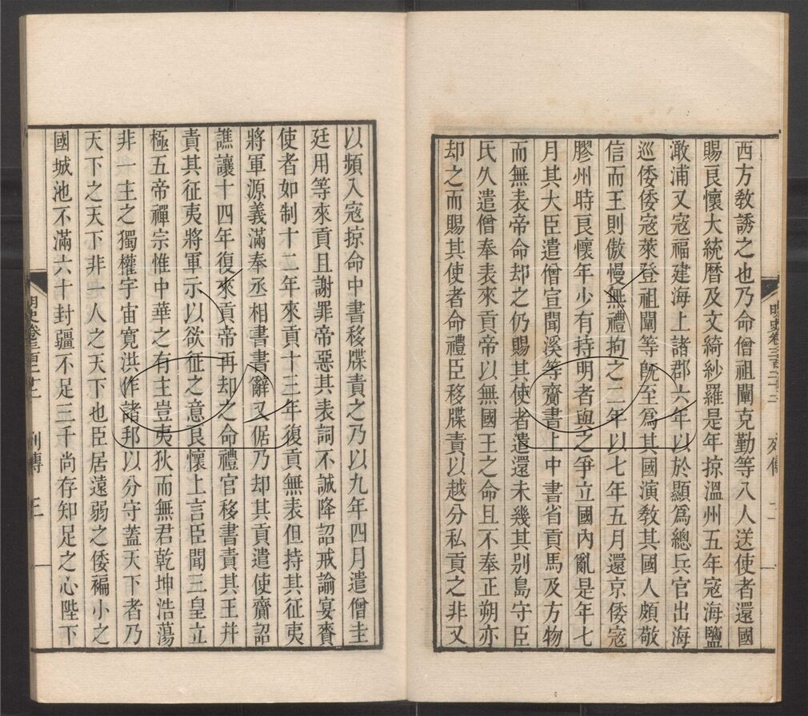 西方敎誘之也乃命僧祖闡克勤等八人送使者還國
賜良懷大統曆及文綺紗羅是年掠溫州五年寇海鹽
澉浦又寇福建海上諸郡六年以於顯爲總兵官出海
巡倭倭寇萊登祖闡等旣至爲其國演敎其國人頗敬
信而王則傲慢無禮拘之二年以七年五月還京倭寇
膠州時良懷年少有持明者與之爭立國內亂是年七
月其大臣遣僧宣聞溪等齎書上中書省貢馬及方物
而無表帝命却之仍賜其使者遣還未幾其別島守臣
氏久遣僧奉表來貢帝以無國王之命且不奉正朔亦
却之而賜其使者命禮臣移牒責以越分私貢之非又
以頻入寇掠命中書移牒責之乃以九年四月遣僧圭
廷用等來貢且謝罪帝惡其表詞不誠降詔戒諭宴賚
使者如制十二年來貢十三年復貢無表但持其征夷
將軍源義滿奉丞相書書辭又倨乃却其貢遣使齎詔
譙讓十四年復來貢帝再却之命禮官移書責其王幷
責其征夷將軍示以欲征之意良懷上言臣聞三皇立
極五帝禪宗惟中華之有主豈夷狄而無君乾坤浩蕩
非一主之獨權宇宙寬洪作諸邦以分守蓋天下者乃
天下之天下非一人之天下也臣居遠弱之倭褊小之
國城池不滿六十封疆不足三千尚存知足之心陛下